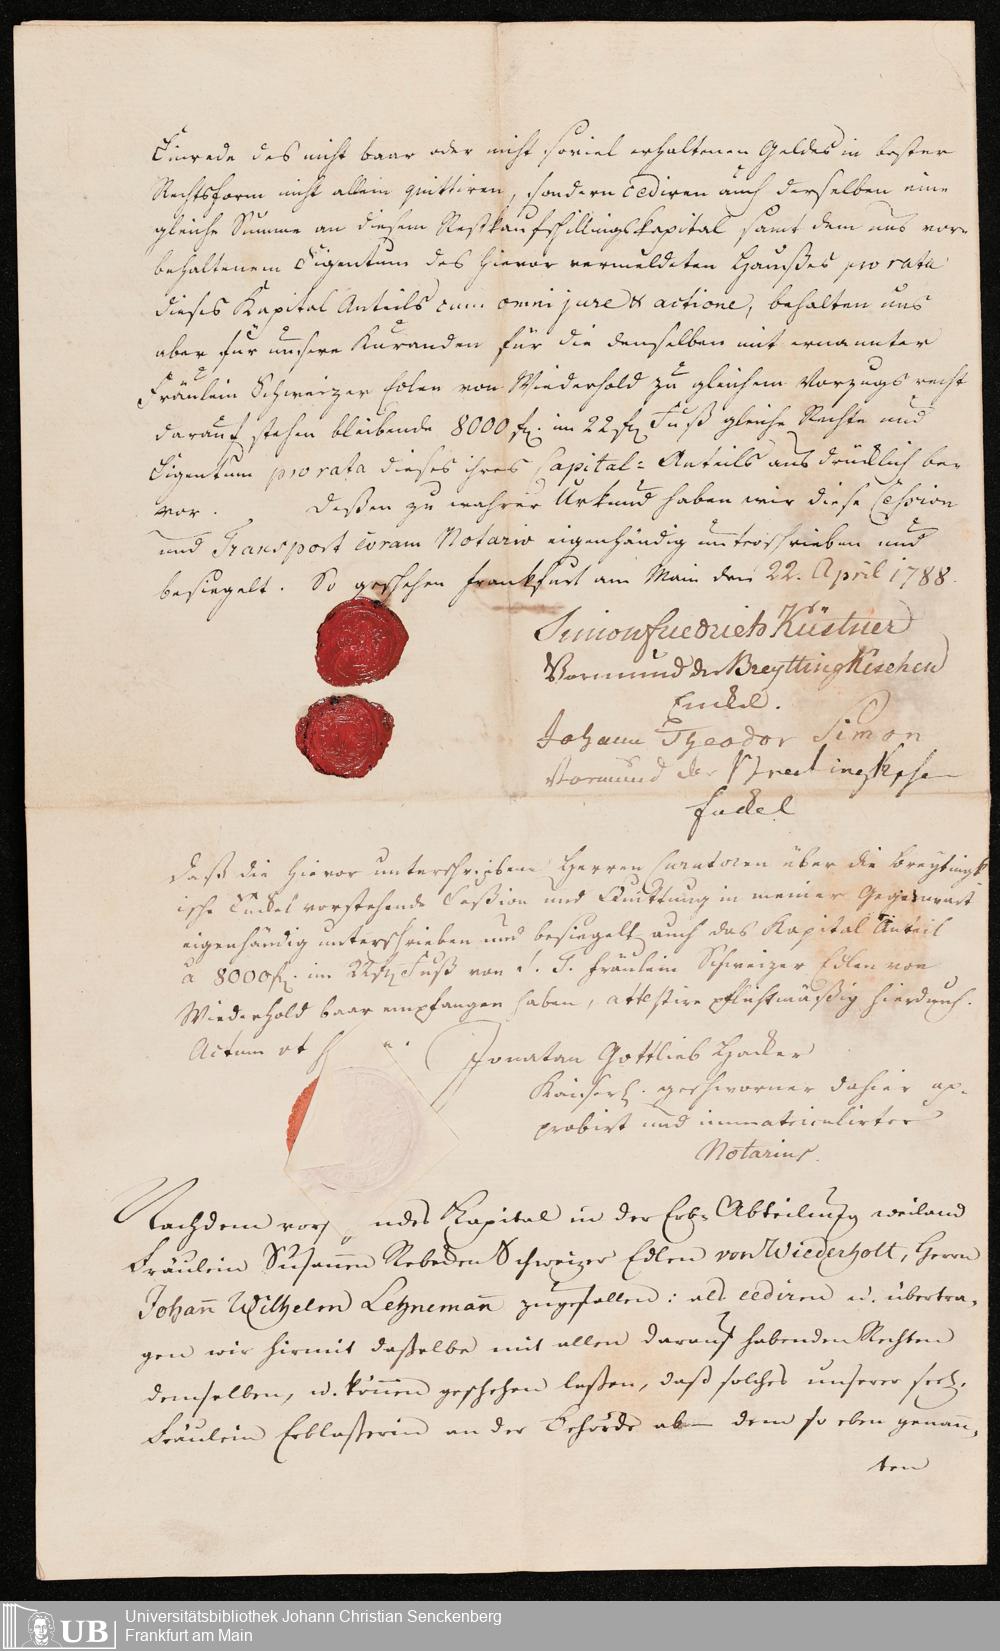 Einrede des nicht baar oder nicht soviel erhaltenen Geldes in bester
Rechtsform nicht allein quittiren, sondern cediren auch derselben eine
gleiche Summe an diesem Restkaufschillingskapital samt dem uns vor-
behaltenem Eigentum des hievor vermeldeten Haußes pro rata
dieses Kapital Anteils cum omni jure & actione, behalten uns
aber für unsere Kuranden für die denselben mit ernannter
Fräulein Schweizer Edlen von Wiederhold zu gleichem Vorzugs recht
darauf stehen bleibende 8000 fl. im 22 fl Fuß gleiche Rechte und
Eigentum pro rata dieses ihres Capital-Anteils ausdrücklich be-
vor. Deßen zu wahrer Urkund haben wir diese Cession
und Transport coram Notario eigenhändig unterschrieben und
besiegelt. So geschehen Frankfurt am Main den 22. April 1788.
Simon Friedrich Küstner
Vormund der Breyttingkischen
Enckel.
Johann Theodor Simon
Vormund der
Enckel
Daß die hievor unterschriebene Herren Curatoren über die Breytingk-
ische Enckel vorstehende Ceßion und Quittung in meiner Gegenwart
eigenhändig unterschrieben und besiegelt auch das Kapital Anteil
à 8000 fl. im 22 fl Fuß von Fräulein Schweizer Edlen von
Wiederhold baar empfangen haben, attestire pflichtmäßig hierdurch.
Actum ut
Jonatan Gottlieb Hacker
Kaiserl. geschworner dahier ap-
probirt und immatriculirter
Notarius.
Nachdem vor ndes Kapital in der Erb-Abteilung weiland
Fräulein Susannen Rebecken Schweizer Edlen von Wiederholt, Herrn
Johann Wilhelm Lehnemann zugefallen: als cediren u. übertra-
gen wir hirmit daßelbe mit allen darauf habenden Rechten
demselben, u. können geschehen laßen, daß solches unserer seel.
Fräulein Erblaßerin an der Behörde ab dem so eben genann-
ten
Universitätsbibliothek Johann Christian Senckenberg
Frankfurt am Main
UB